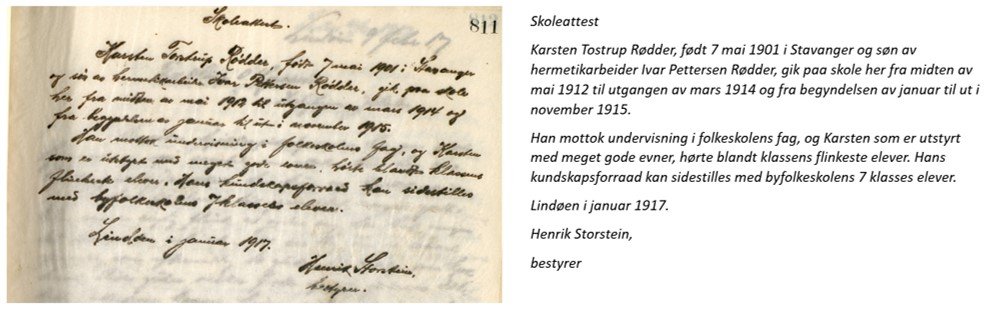 Skoleattest.
811
Karsten Tostrup Rødder, født 7 mai 1901 i Stavanger
og søn av hermetikarbeider Ivar Pettersen Rødder, gik paa skole
her fra midten av mai 1912 til utgangen av mars 1914 og
fra begyndelsen av januar til ut i november 1915.
Han mottok undervisning i folkeskolens fag, og Karsten
som er utstyrt med meget gode evner, hørte blandt klassens
flinkeste elever. Hans kundskapsforraad kan sidestilles
med byfolkeskolens 7 klasses elever.
Lindøen i januar 1917.
Henrik Storstein,
bestyrer.
Skoleattest
Karsten Tostrup Rødder, født 7 mai 1901 i Stavanger og søn av
hermetikarbeider Ivar Pettersen Rødder, gik paa skole her fra midten av
mai 1912 til utgangen av mars 1914 og fra begyndelsen av januar til ut i
november 1915.
Han mottok undervisning i folkeskolens fag, og Karsten som er utstyrt
med meget gode evner, hørte blandt klassens flinkeste elever. Hans
kundskapsforraad kan sidestilles med byfolkeskolens 7 klasses elever.
Lindøen i januar 1917.
Henrik Storstein,
bestyrer